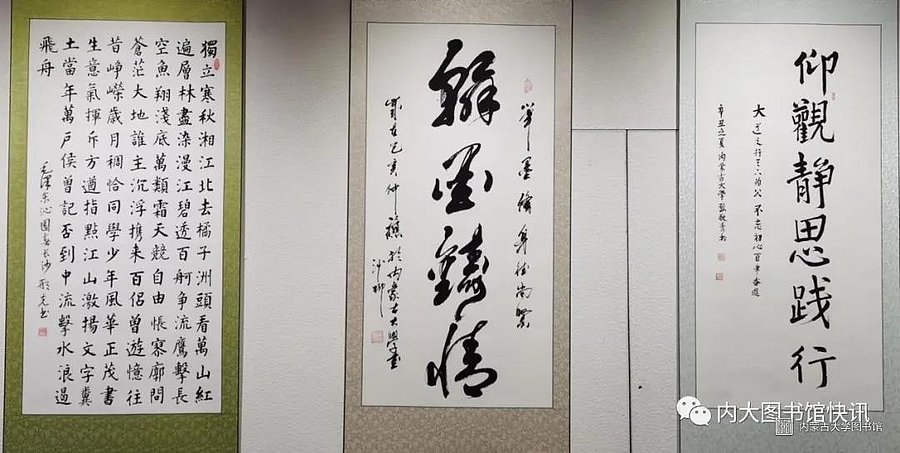 仰觀静思践行
大道之行天下為公 不忘初心百年奋進
辛丑立夏内蒙古大學張
翰墨鑄情
歲在己亥仲穐於内蒙古大學
沙柳
獨立寒秋湘江北去橘子洲頭看萬山紅
遍層林盡染漫江碧透百舸争流鷹擊長
空魚翔淺底萬類霜天競自由悵寥廓問
蒼茫大地誰主沉浮携来百侣曾遊憶往
昔崢嶸歲月稠恰同學少年風華正茂書
生意氣揮斥方遒指點江山激揚文字糞
土當年萬戶侯曾記否到中流擊水浪遏
飛舟
毛澤東沁園春長沙
内大图书馆快讯
内蒙古大学图书馆